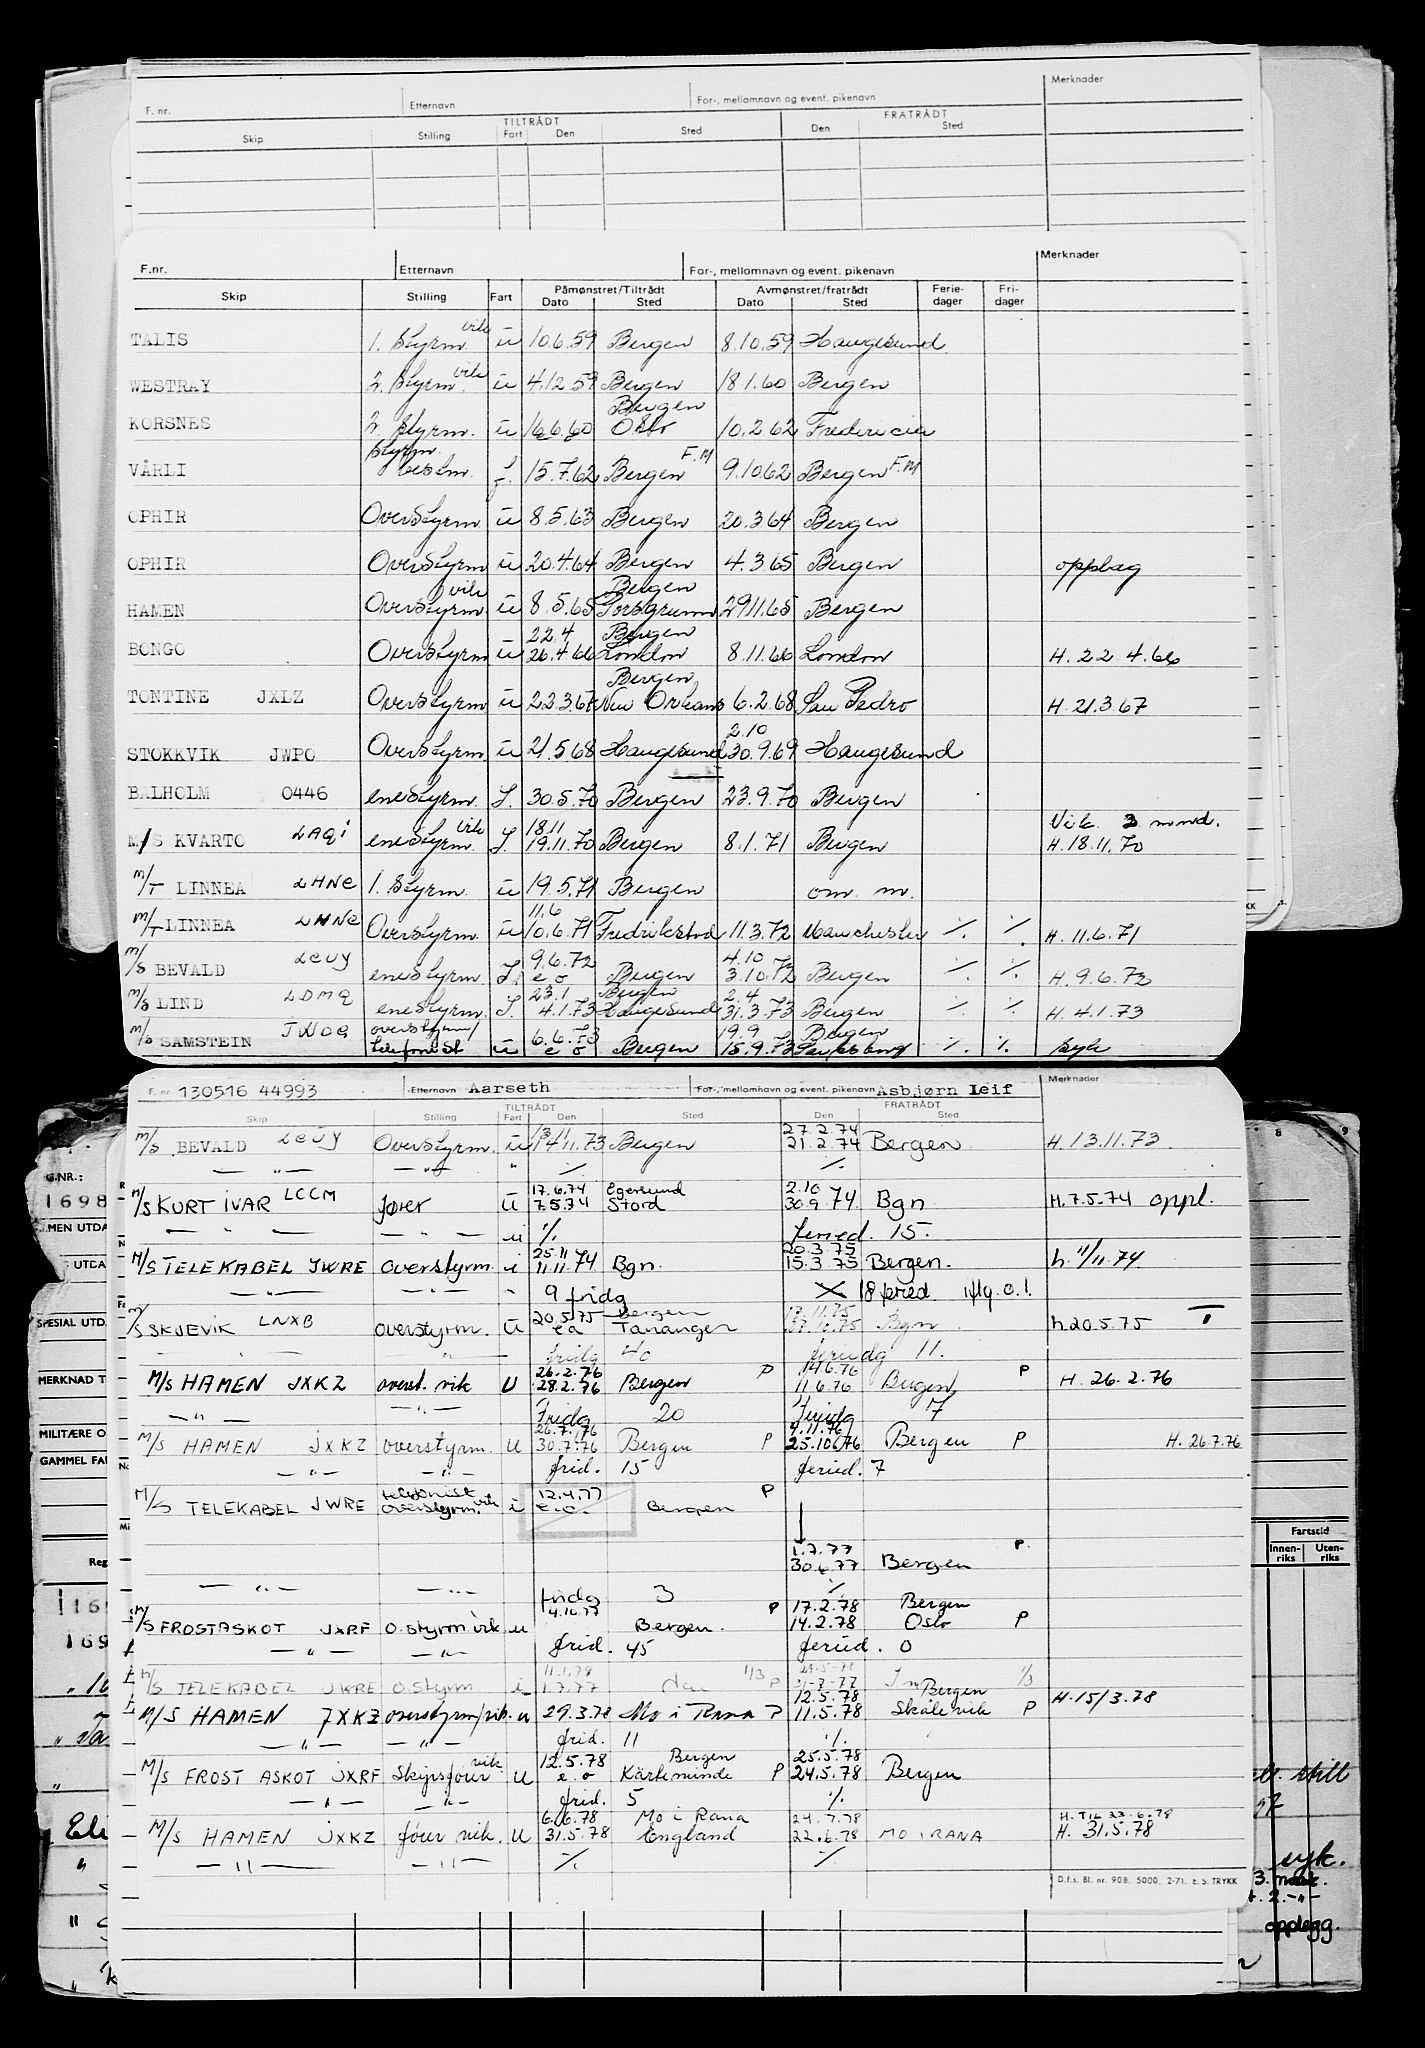 Merknader
F. nr. Etternavn For-, mellomnavn og event. pikenavn
TILTRÅDT FRATRÅDT
Skip Stilling Fart Den Sted Den Sted
Merknader
F.nr. Etternavn For-, mellomnavn og event. pikenavn
Påmønstret/Tiltrådt Avmønstret/fratrådt Ferie- Fri-
Skip Stilling Fart Dato Sted Dato Sted dager dager
TALIS 1. Styrm. vik u 10.6.59 Bergen 8.10.59 Haugesund
WESTRAY 2. Styrm. vik u 4.12.59 Bergen 18.1.60 Bergen
Bergen
KORSNES 2. Styrm. u 16.6.60 Oslo 10.2.62 Fredericia
Styrm.
VÅRLI besm. f. 15.7.62 Bergen F.M 9.10.62 Bergen F.M
OPHIR Overstyrm u 8.5.63 Bergen 20.3.64 Bergen
OPHIR Overstyrm u 20.4.64 Bergen 4.3.65 Bergen oppbag
vik Bergen
HAMEN Overstyrm u 8.5.65 Porsgrunn 29.11.65 Bergen
22.4 Bergen
BONGO Overstyrm u 26.4.66 London 8.11.66 London H. 22 4.66
Bergen
TONTINE JXLZ Overstyrm u 22.3.67 New Orleans 6.2.68 San Pedro H. 21.3 67
2.10
STOKKVIK JWPO Overstyrm u 21.5.68 Haugesund 30.9.69 Haugesund
BALHOLM 0446 enestyrm. I. 30.5.70 Bergen 23.9.70 Bergen
vik 18.11 Vik. 3 mnd.
M/S KVARTO LAQI enestyrm. I. 19.11.70 Bergen 8.1.71 Bergen H. 18.11.70
M/T LINNEA LHNC 1. Styrm. u 19.5.71 Bergen om. m.
11.6
M/T LINNEA LHNC Overstyrm. u 10.6.71 Fredrikstad 11.3.72 Manchester ./. ./. H. 11.6.71
9.6.72 4.10
M/S BEVALD LEVY enestyrm. I. e o Bergen 3.10.72 Bergen ./. ./. H. 9.6.72
23.1 Bergen 2.4
M/S LIND LDMQ enestyrm. I. 4.1.73 Haugesund 31.3.73 Bergen ./. ./. H. 4.1.73
overstyrm/ 6.6.73 19.9 Bergen
M/S SAMSTEIN JWOQ telefonist u e o Bergen 15.9.73 ./. ./. syk
F. nr. 130516 44993 Etternavn Aarseth For-, mellomnavn og event. pikenavn Asbjørn Leif Merknader
TILTRÅDT FRATRÅDT
Skip Stilling Fart Den Sted Den Sted
13 27.2.74
M/S BEVALD LEVY Overstyrm. u 14.11.73 Bergen 21.2.74 Bergen H. 13.11.73
— " — — " — " ./. ./.
17.6.74 Egersund 2.10
M/S KURT IVAR LCCM fører U 7.5.74 Stord 30.9.74. Bgn H. 7.5.74 oppl.
— " — " — — " — u ./. feried. 15.
25.11 20.3.75
M/S TELEKABEL JWRE overstyrm. i 11.11.74 Bgn. 15.3.75 Bergen. h. 11/11.74
— " — — " — " 9 fridg 18 feried
20.5.75 Bergen 17.11.75
M/S SKJEVIK LNXB overstyrm. U e a Tananger Bgn h 20.5.75 T
" fridg 40 feriedg 11.
26.2.76 P 14.6.76 P
M/S HAMEN JXKZ overst. vik U 28.2.76 Bergen 11.6.76 Bergen H. 26.2.76
— " — — " — Fridg 20 feriedg 7
26.7.76 4.11.76
M/S HAMEN JXKZ overstyrm. u 30.7.76 Bergen P 25.10.76 Bergen P H. 26.7.76
— " — — " — frid. 15 feried. 7
telefonist 12.4.77 P
M/S TELEKABEL JWRE overstyrm. vik i e.o. Bergen
1.7.77 P
30.6.77 Bergen
— " — — " — fridg 3 ./.
4.10.77 P 17.2.78 Bergen
M/S FROSTASKOT JXRF O.styrm vik u Bergen. 14.2.78 Oslo P
— " — — " — frid. 45 feried. 0
11.1.78 1/3 1/3
M/S TELEKABEL JWRE O.styrm i 1.7.77 P
12.5.78 Bergen H. 15/3.78
M/S HAMEN JXKZ overstyrm/vik. u 29.3.78 Mo i Rana P 11.5.78 Skålevik P
— " — — " — frid. 11 ./.
vik 12.5.78 Bergen 25.5.78
M/S FROST ASKOT JXRF Skipsfører U e o Kärteminde P 24.5.78 Bergen
— " — — " — frid. 5 ./.
6.6.78 Mo i Rana 24.7.78 H. TIL 22.6.78
M/S HAMEN JXKZ fører vik. U 31.5.78 England 22.6.78 MO I RANA H. 31.5.78
— " — — " — ./. ./.
D.f.s. Bl. nr. 90B. 5000. 2-71. E.S. TRYKK
G.NR.:
1698
UTDA
SPESIAL UTD.
MERKNAD T
MILITÆRE O
GAMMEL FAR
Reg
8 9
Fartstid
Innen-riks Uten-riks
syk.
3. mask.
opplegg.